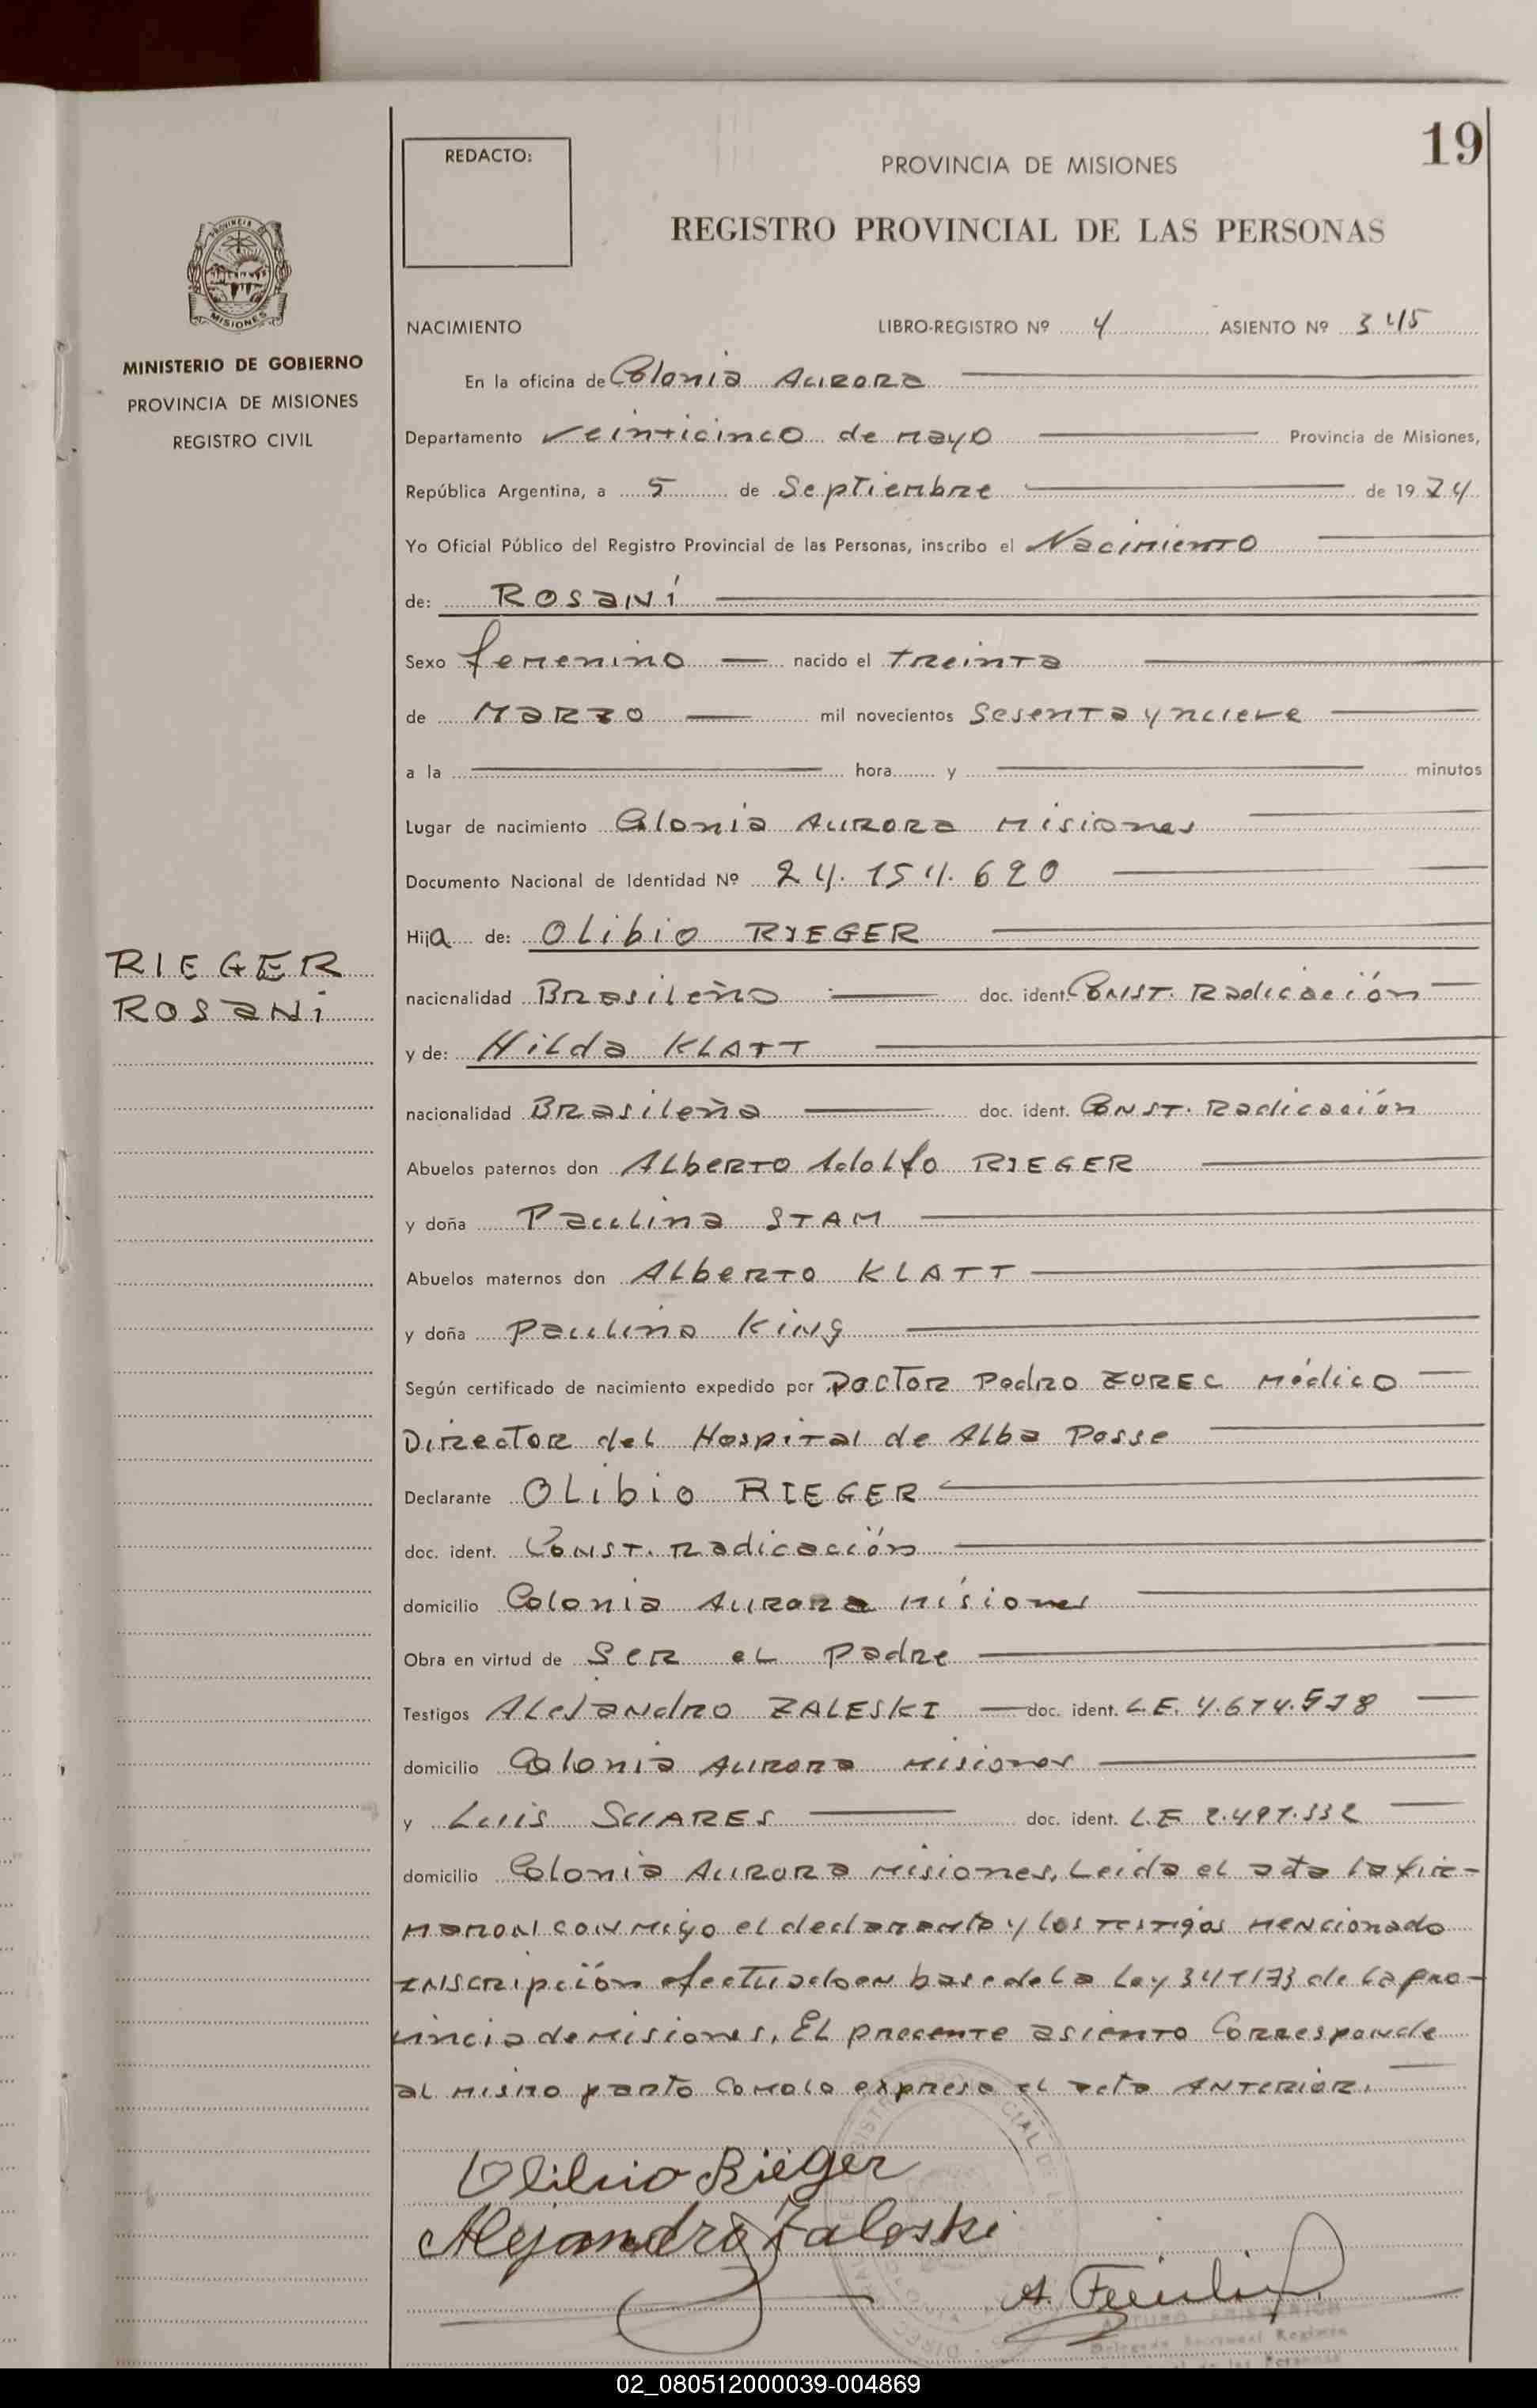 19
REDACTO:
PROVINCIA DE MISIONES
REGISTRO PROVINCIAL DE LAS PERSONAS
PROVINCIA DE
MISIONES
MINISTERIO DE GOBIERNO
PROVINCIA DE MISIONES
REGISTRO CIVIL
NACIMIENTO LIBRO-REGISTRO Nº 4 ASIENTO Nº 345
En la oficina de Colonia Aurora
Departamento Veinticinco de mayo Provincia de Misiones,
República Argentina, a 5 de Septiembre de 1974
Yo Oficial Público del Registro Provincial de las Personas, inscribo el Nacimiento
de: Rosaní
Sexo femenino nacido el treinta
de Marzo mil novecientos Sesenta y nueve
a la hora y minutos
Lugar de nacimiento Colonia Aurora Misiones
Documento Nacional de Identidad Nº 24.154.620
Hija de: Olibio RIEGER
RIEGER
ROSANi
nacionalidad Brasileño doc. ident. Const. Radicación
y de: Hilda KLATT
nacionalidad Brasileña doc. ident. Const. Radicación
Abuelos paternos don Alberto Adolfo RIEGER
y doña Paulina STAM
Abuelos maternos don Alberto KLATT
y doña Paulina King
Según certificado de nacimiento expedido por Doctor Pedro ZUREC Médico
Director del Hospital de Alba Posse
Declarante Olibio RIEGER
doc. ident. Const. Radicación
domicilio Colonia Aurora Misiones
Obra en virtud de Ser el Padre
Testigos Alejandro ZALESKI doc. ident. L.E. 4.674.578
domicilio Colonia Aurora Misiones
y Luis SUARES doc. ident. L.E 2.497.332
domicilio Colonia Aurora Misiones, Leida el acta la fir-
maron conmigo el declarante y los testigos mencionado
Inscripción efectuado en base de la Ley 341/73 de la pro-
vincia de misiones. El precente asiento Corresponde
al mismo parto como lo expresa el acta ANTERIOR.
Olibio Rieger
Alejandro Zaleski
A.
02_080512000039-004869